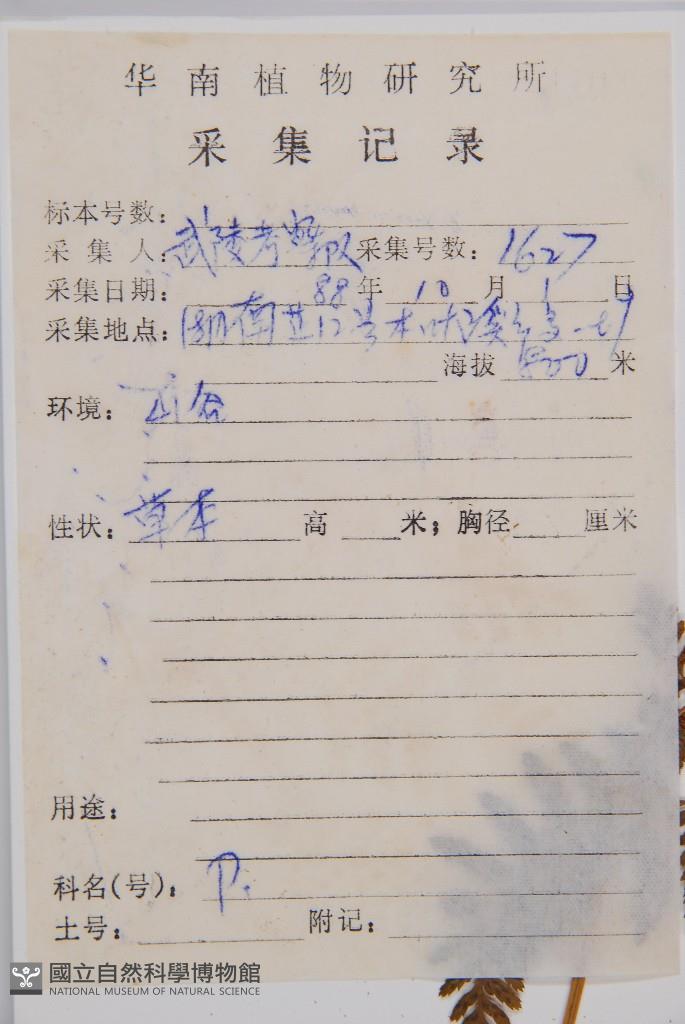 华南植物研究所
采集记录
标本号数：
采集人：武陵考察队 采集号数：1627
采集日期： 88年 10 月 1 日
采集地点：湖南
海拔 500 米
环境：山谷
性状：草本 高 米；胸径 厘米
用途：
科名(号)：P.
土号： 附记：
國立自然科學博物館
NATIONAL MUSEUM OF NATURAL SCIENCE